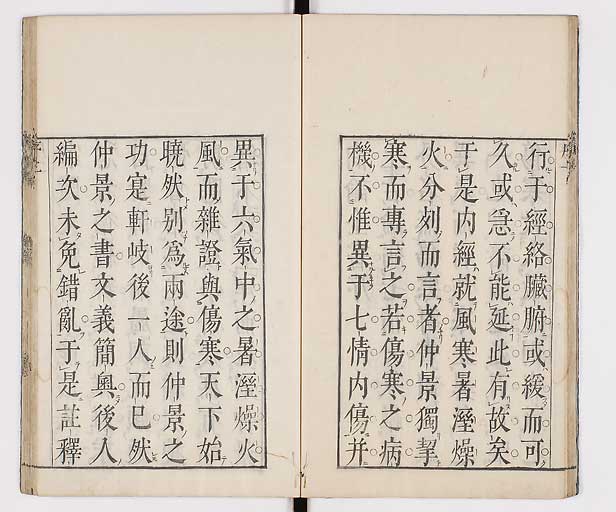 行于經絡臟腑或緩而可
久或急不能延此有故矣
于是内經就風寒暑溼燥
火分刻而言者仲景獨挈
寒而專言之若傷寒之病
機不惟異于七情内傷并
異于六氣中之暑溼燥火
風而雜證與傷寒天下始
曉然别爲兩途則仲景之
功寔軒岐後一人而已然
仲景之書文義簡奥後人
編次未免錯亂于是註釋